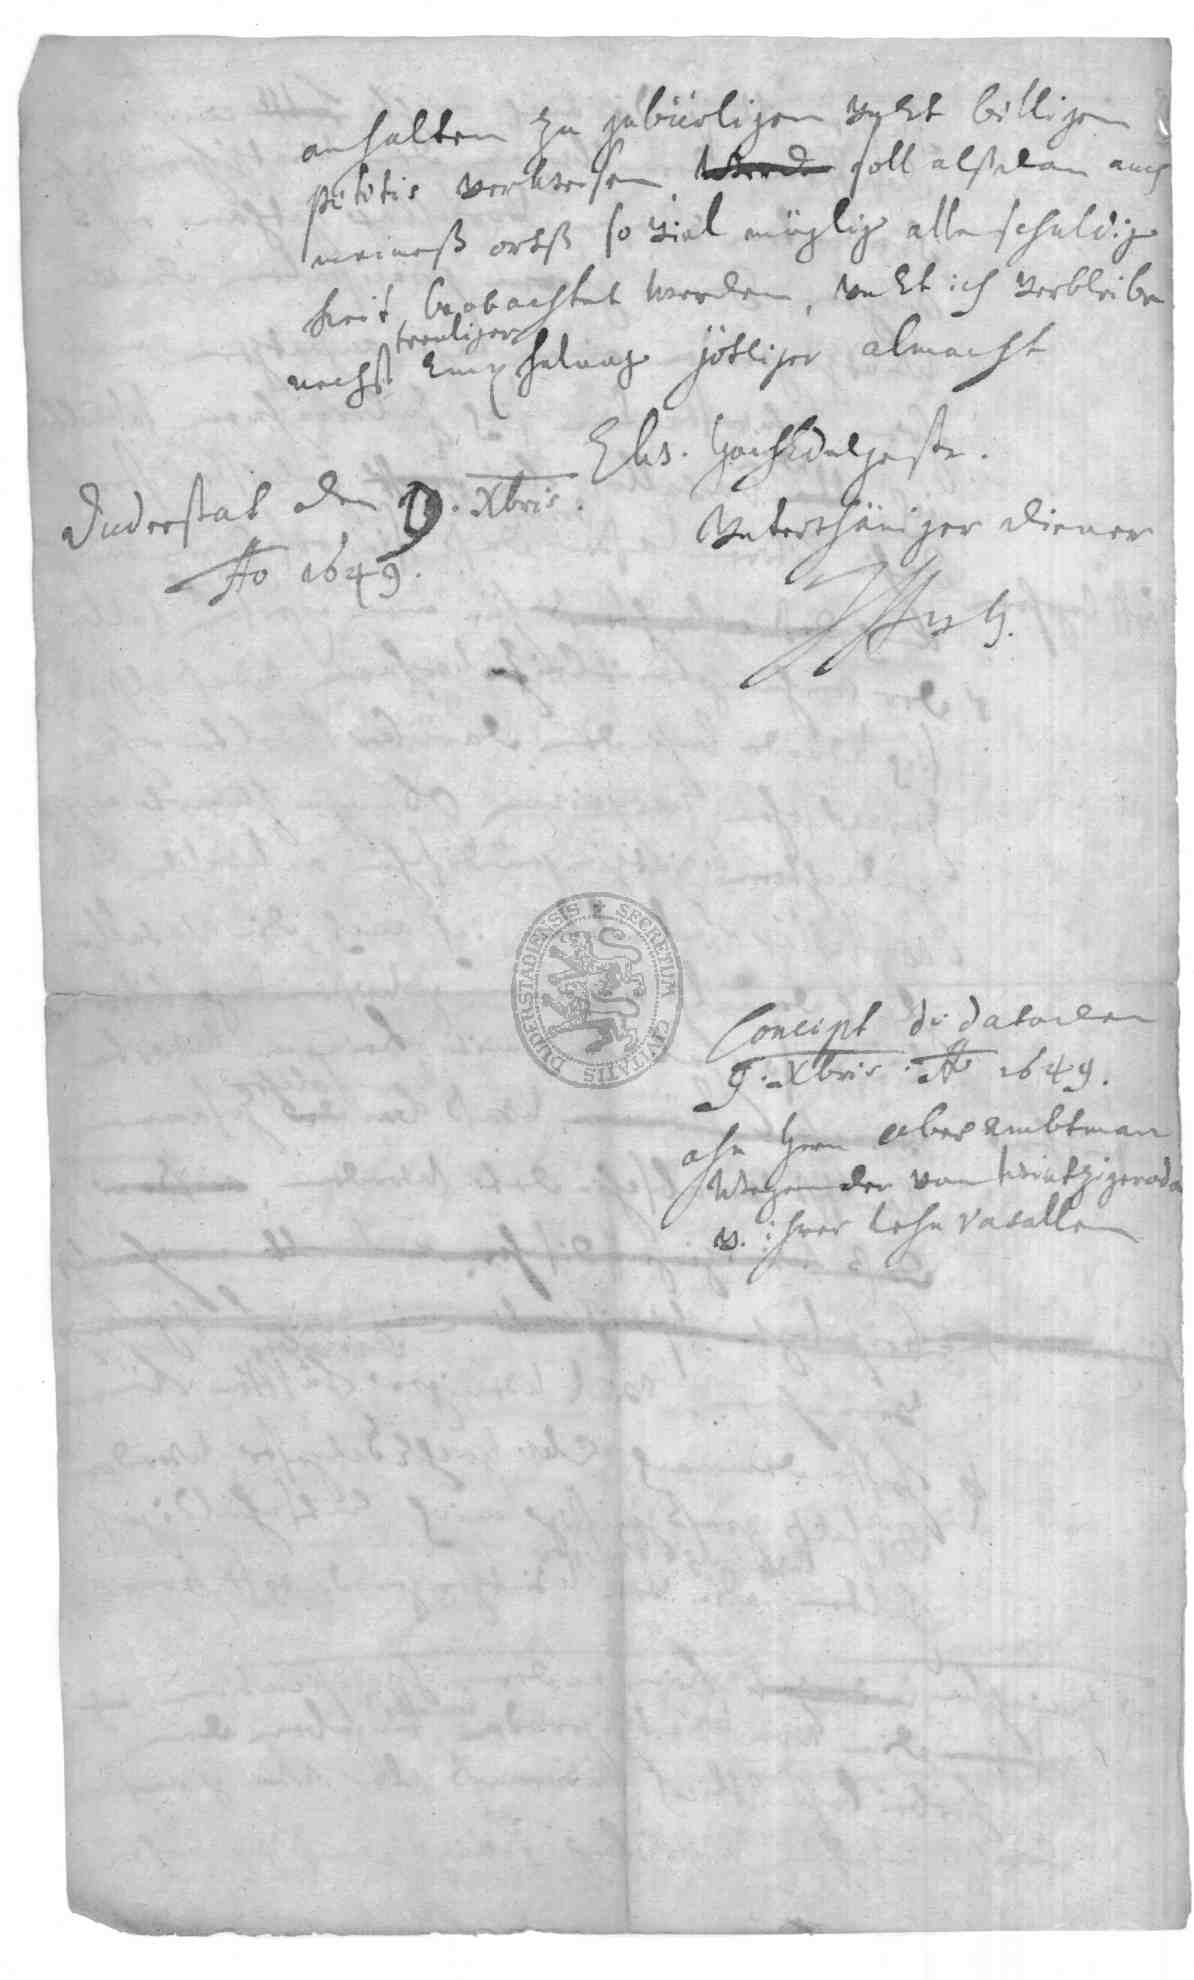 anhalten zu gebüerligen undt billigen
petitis verweisen, werde soll alßdan auch
meineß ortß so viel müglig alle schuldig
keit beobachtet werden, undt ich verbleibe
nechst treuliger Empfelung götliger almacht
Ews. HochEdelgestr.
Duderstat den 9. Xbris.
Unterthäniger diener
Ao 1649.
SECRETUM CIVITATIS DUDERSTADIENSIS
Concept de dato den
9. Xbris. Ao 1649.
ahn Hern oberambtman
wegen der von wintzigeroda
u. ihrer lehn vasallen